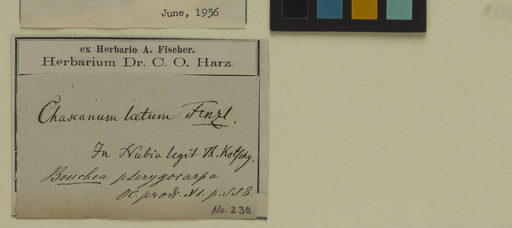 June, 1936
ex Herbario A. Fischer.
Herbarium Dr. C. O. Harz.
Chascanum lætum Fenzl.
In Nubia legit Th. Kotschy.
Bouchea pterygocarpa
DC. prodr. XI. p. 558.
No. 230